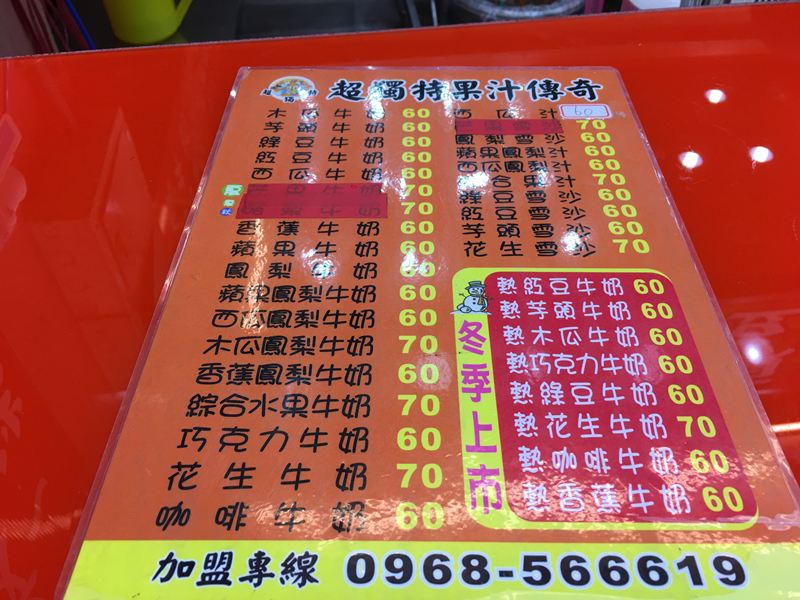 超獨特果汁傳奇
木瓜牛奶 60
芋頭牛奶 60
綠豆牛奶 60
紅豆牛奶 60
西瓜牛奶 60
70
70
香蕉牛奶 60
蘋果牛奶 60
鳳梨牛奶 60
蘋果鳳梨牛奶 60
西瓜鳳梨牛奶 60
木瓜鳳梨牛奶 70
香蕉鳳梨牛奶 60
綜合水果牛奶 70
巧克力牛奶 60
花生牛奶 70
咖啡牛奶 60
西瓜汁 60
70
鳳梨雪沙 60
蘋果鳳梨汁 60
西瓜鳳梨汁 60
綜合果汁 70
綠豆雪沙 60
紅豆雪沙 60
芋頭雪沙 60
花生雪沙 70
冬季上市
熱紅豆牛奶 60
熱芋頭牛奶 60
熱木瓜牛奶 60
熱巧克力牛奶 60
熱綠豆牛奶 60
熱花生牛奶 70
熱咖啡牛奶 60
熱香蕉牛奶 60
加盟專線 0968-566619